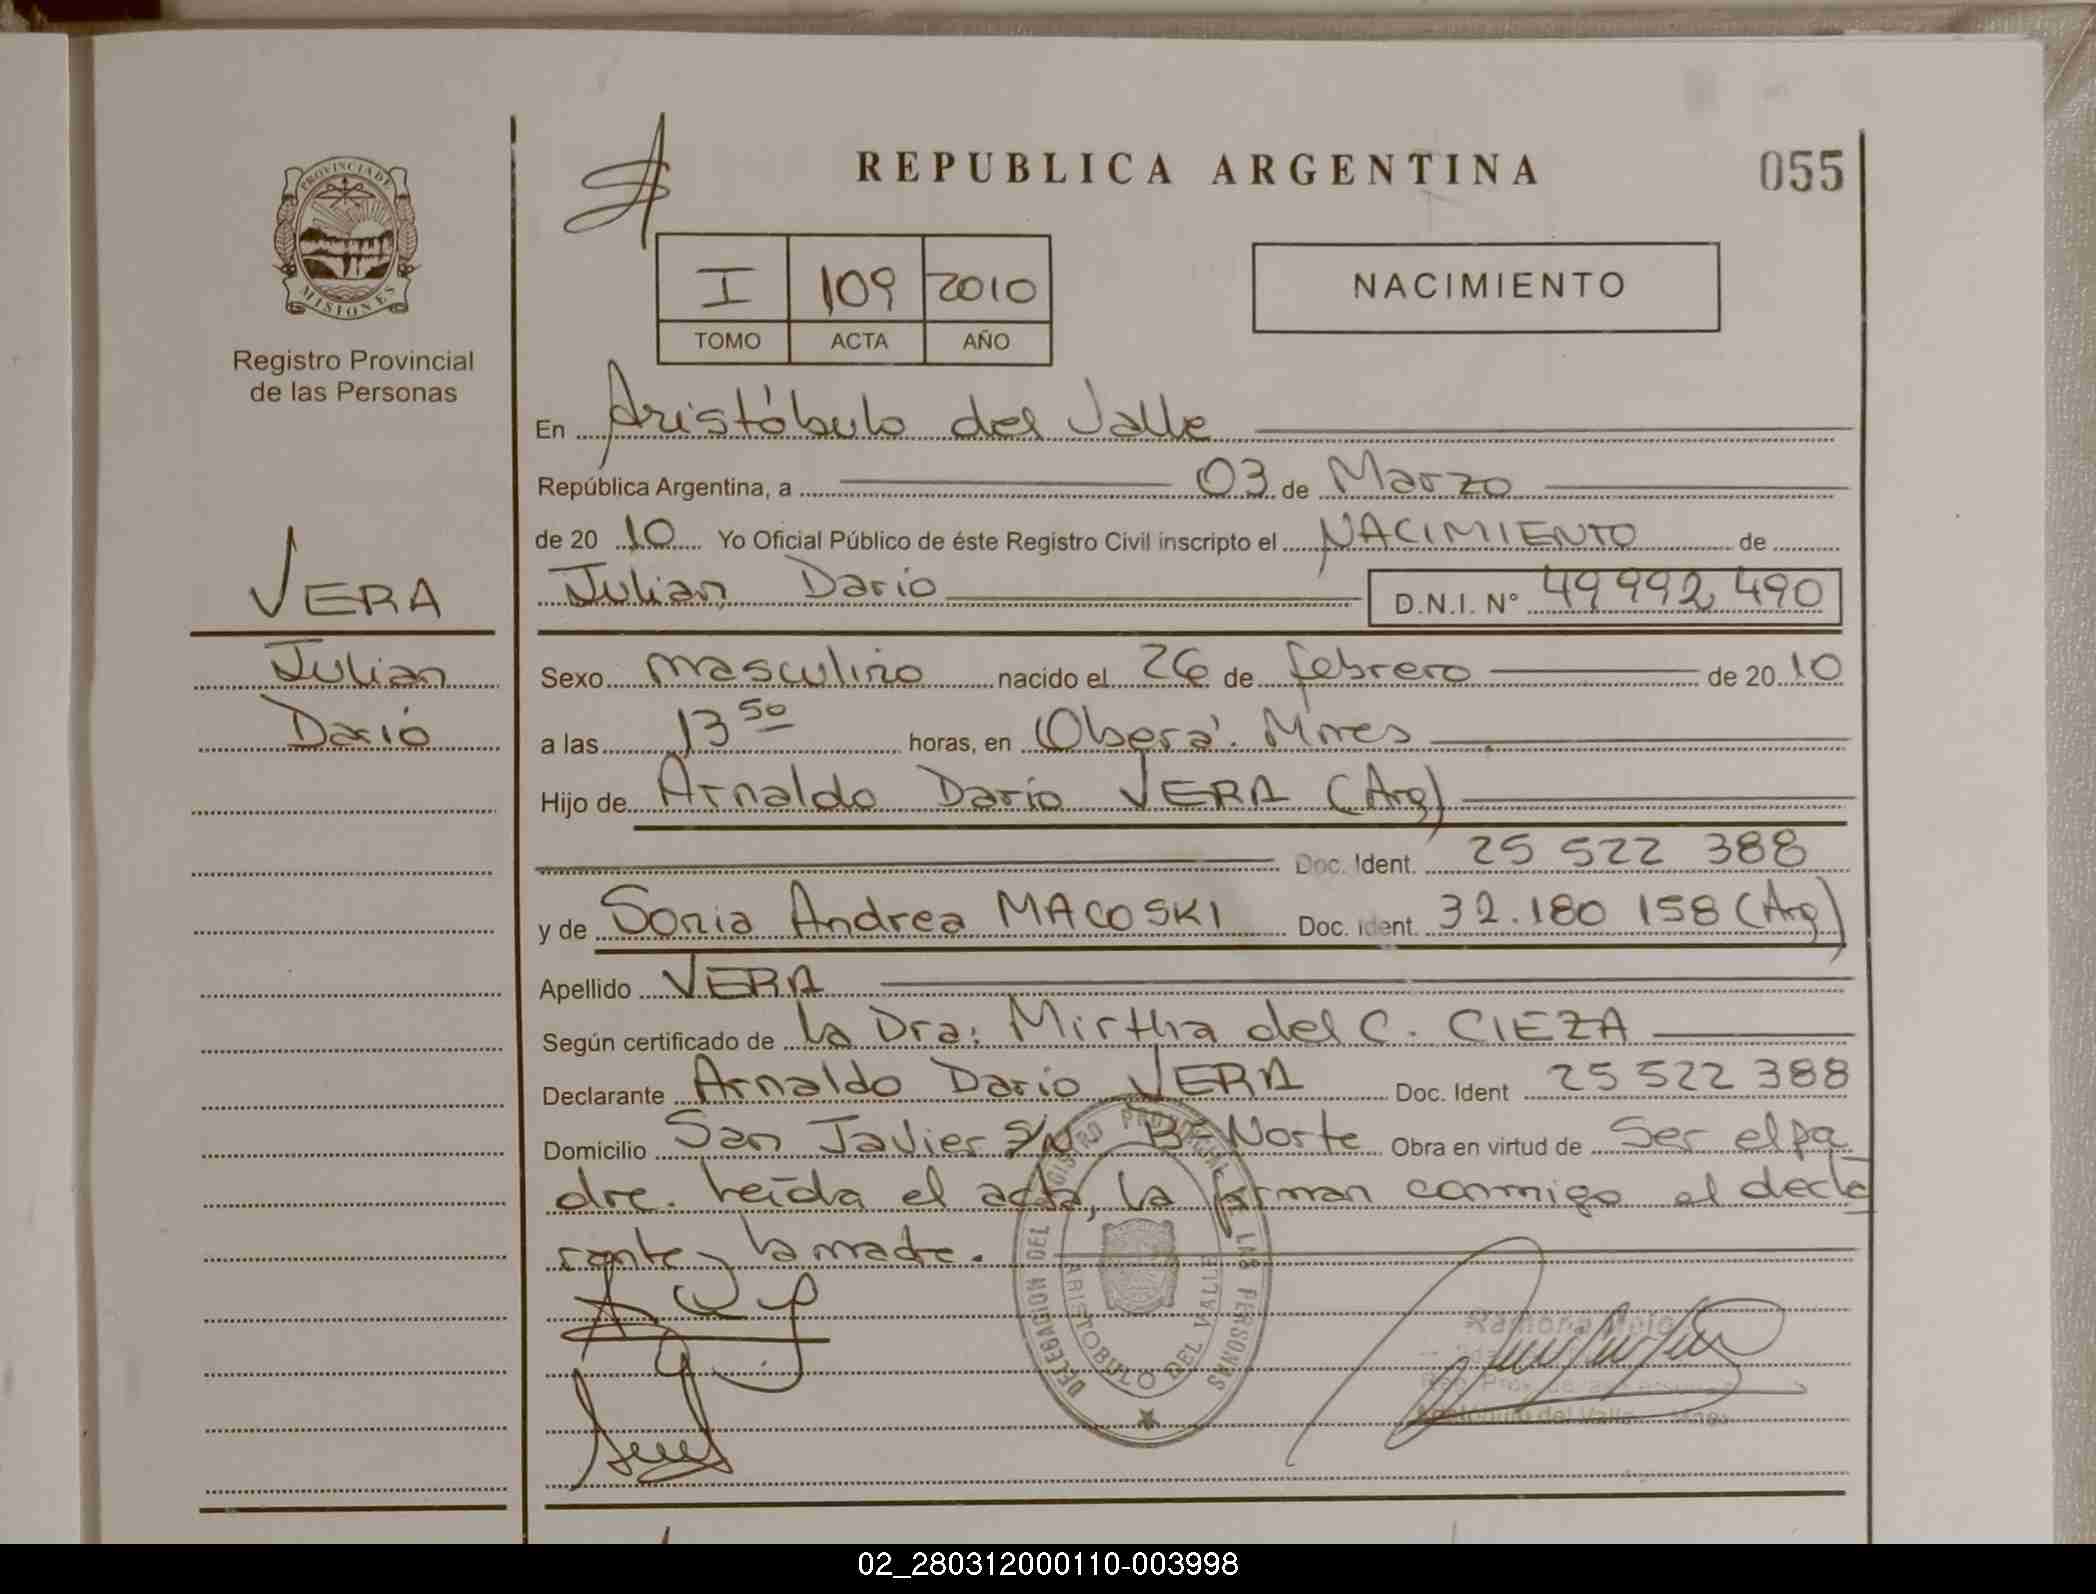 REPUBLICA ARGENTINA
055
PROVINCIA DE
MISIONES
Registro Provincial
de las Personas
I 109 2010
TOMO ACTA AÑO
NACIMIENTO
En Aristóbulo del Valle
República Argentina, a 03 de Marzo
de 20 10 Yo Oficial Público de éste Registro Civil inscripto el NACIMIENTO de
Julian Dario D.N.I. N° 49992490
VERA
Julian
Darió
Sexo masculino nacido el 26 de febrero de 20 10
a las 13 50 horas, en Oberá. Mnes
Hijo de Arnaldo Darío VERA (Arg)
Doc. Ident. 25 522 388
y de Sonia Andrea MACOSKI Doc. Ident. 32.180 158 (Arg)
Apellido VERA
Según certificado de la Dra: Mirtha del C. CIEZA
Declarante Arnaldo Dario VERA Doc. Ident 25 522 388
Domicilio San Javier S/N B° Norte Obra en virtud de Ser el pa
dre. Leída el acta, la firman conmigo el decla
rante y la madre.
DELEGACION DEL REGISTRO PROVINCIAL DE LAS PERSONAS
ARISTOBULO DEL VALLE
Ramona
Aristóbulo del Valle Mnes
02_280312000110-003998